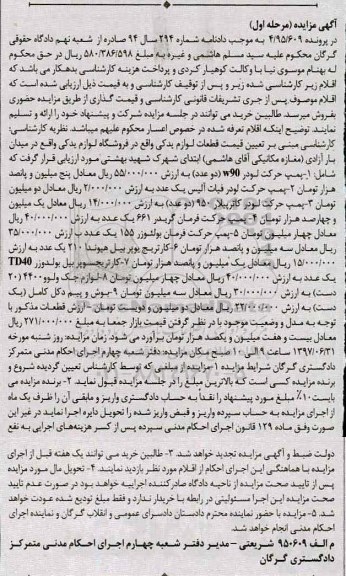 آگهی مزایده (مرحله اول)
در پرونده ۴/۹۵/۶۰۹ به موجب دادنامه شماره ۲۹۴ سال ۹۴ صادره از شعبه نهم دادگاه حقوقی
گرگان محکوم علیه سید مسلم هاشمی و غیره به مبلغ ۵۸۰/۳۸۶/۵۹۸ ریال در حق محکوم
له بهنام موسوی نیا با وکالت کوهیار کردی و پرداخت هزینه کارشناسی بدهکار می باشد که
اقلام زیر کارشناسی شده زیر و پس از توقیف کارشناسی و به قیمت ذیل ارزیابی شده است که
اقلام موصوف پس از جری تشریفات قانونی کارشناسی و قیمت گذاری از طریق مزایده حضوری
بفروش میرسد. طالبین خرید می توانند در جلسه مزایده شرکت و پیشنهاد خود را ارائه و تسلیم
نمایند. توضیح اینکه اقلام تعرفه شده در خصوص اعسار محکوم علیهم میباشد. نظریه کارشناسی:
کارشناسی مبنی بر تعیین قیمت قطعات لوازم یدکی واقع در فروشگاه لوازم یدکی واقع در میدان
بار آزادی (مغازه مکانیکی آقای هاشمی) ابتدای شهرک شهید بهشتی مورد ارزیابی قرار گرفت که
شامل: ۱-پمپ حرکت لودر w90 (دو عدد) به ارزش ۵۵/۰۰۰/۰۰۰ ریال معادل پنج میلیون و پانصد
هزار تومان ۲-پمپ حرکت لودر فیات آلیس یک عدد به ارزش ۲/۰۰۰/۰۰۰ ریال معادل دو میلیون
تومان ۳-پمپ حرکت لودر کاترپیلار ۹۵۰ (دو عدد) به ارزش ۱۴/۰۰۰/۰۰۰ ریال معادل یک میلیون
و چهارصد هزار تومان ۴-پمپ حرکت فرمان گریدر ۶۶۱ یک عدد به ارزش ۴۰/۰۰۰/۰۰۰ ریال
معادل چهار میلیون تومان ۵-پمپ حرکت فرمان بولدوزر ۱۵۵ یک عدد به ارزش ۳۵/۰۰۰/۰۰۰
ریال معادل سه میلیون و پانصد هزار تومان ۶-کارتریج پویر بیل هیوندا ۲۱۰ یک عدد به ارزش
۱۵/۰۰۰/۰۰۰ ریال معادل یک میلیون و پانصد هزار تومان ۷-کارتریجسوپر بیل بولدوزر TD40
یک عدد به ارزش ۴۰/۰۰۰/۰۰۰ ریال معادل چهار میلیون تومان ۸-لوازم جک ولوو ۴۴۰۰ (۲۰
دست) به ارزش ۳۰/۰۰۰/۰۰۰ ریال معادل سه میلیون تومان ۹-بوش و پیم دکل کامل (یک
دست) به ارزش ۲۲/۰۰۰/۰۰۰ ریال معادل دو میلیون و دویست تومان - ارزش قطعات مذکور با
توجه به مدل و وضعیت موجود با در نظر گرفتن قیمت بازار جمعا به مبلغ ۲۷۱/۰۰۰/۰۰۰ ریال
معادل بیست و هفت میلیون و یکصد هزار تومان برآورد می شود. زمان مزایده: روز شنبه مورخه
۱۳۹۷/۰۶/۳۱ ساعت ۹ الی ۱۰ صبح مکان مزایده: دفتر شعبه چهارم اجرای احکام مدنی متمرکز
دادگستری گرگان شرایط مزایده ۱-مزایده از مبلغی که توسط کارشناس تعیین گردیده شروع و
برنده مزایده کسی است که بالاترین مبلغ را در جلسه مزایده قبول نماید. ۲- برنده مزایده می
بایست ۱۰٪ مبلغ مورد پیشنهاد را نقداً به حساب دادگستری واریز و مابقی آن را ظرف یک ماه
از اجرای مزایده به حساب سپرده واریز و قبض واریز شده را تحویل دایره اجرا نماید در غیر این
صورت وفق ماده ۱۲۹ قانون اجرای احکام مدنی سپرده پس از کسر هزینه‌های اجرایی به نفع
دولت ضبط و آگهی مزایده تجدید خواهد شد. ۳- طالبین خرید می توانند یک هفته قبل از اجرای
مزایده با هماهنگی این اجرای احکام از اقلام مورد نظر بازدید نمایند. ۴- تحویل مال مورد مزایده
پس از تایید صحت مزایده از ناحیه دادگاه صادرکننده اجراییه خواهد بود در صورت عدم تایید
صحت مزایده این اجرا مسئولیتی در رابطه با خریدار ندارد و فقط مبلغ تودیع شده عودت خواهد
شد. ۵- مزایده با حضور نماینده محترم دادستان دادسرای عمومی و انقلاب گرگان و نماینده اجرای
احکام مدنی انجام خواهد شد.
م الف ۹۵۰۶۰۹ شریعتی - مدیر دفتر شعبه چهارم اجرای احکام مدنی متمرکز
دادگستری گرگان